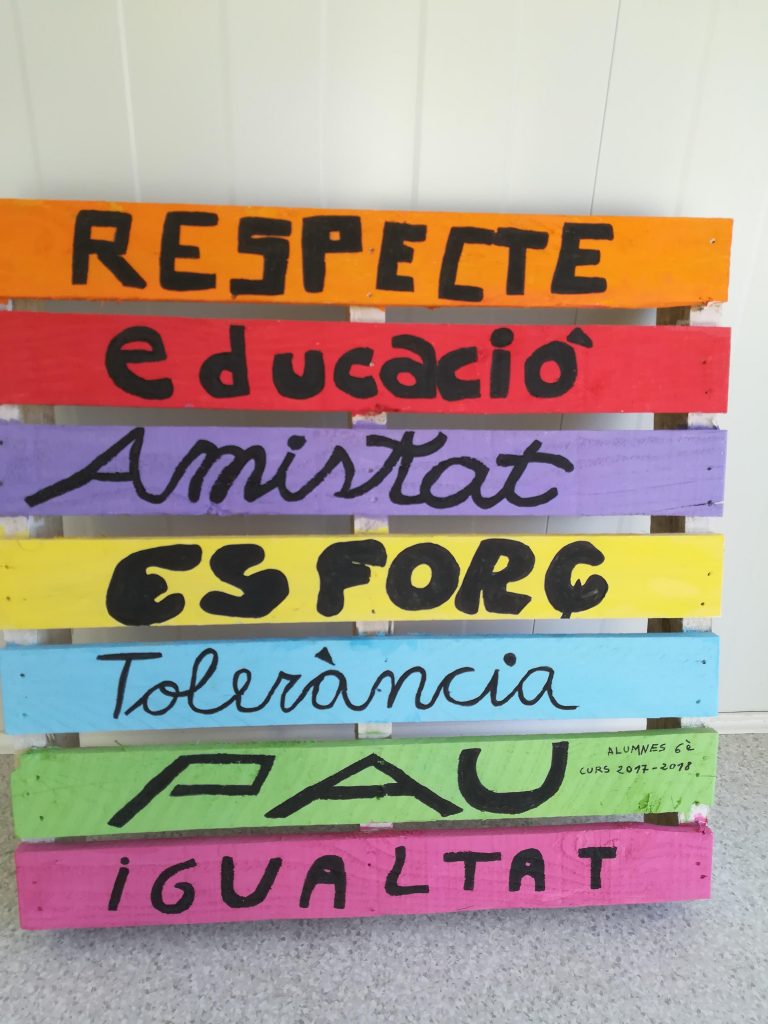 RESPECTE
educaciò
Amistat
ESFORÇ
Tolerància
PAU
ALUMNES 6è
CURS 2017-2018
iGUALTAT